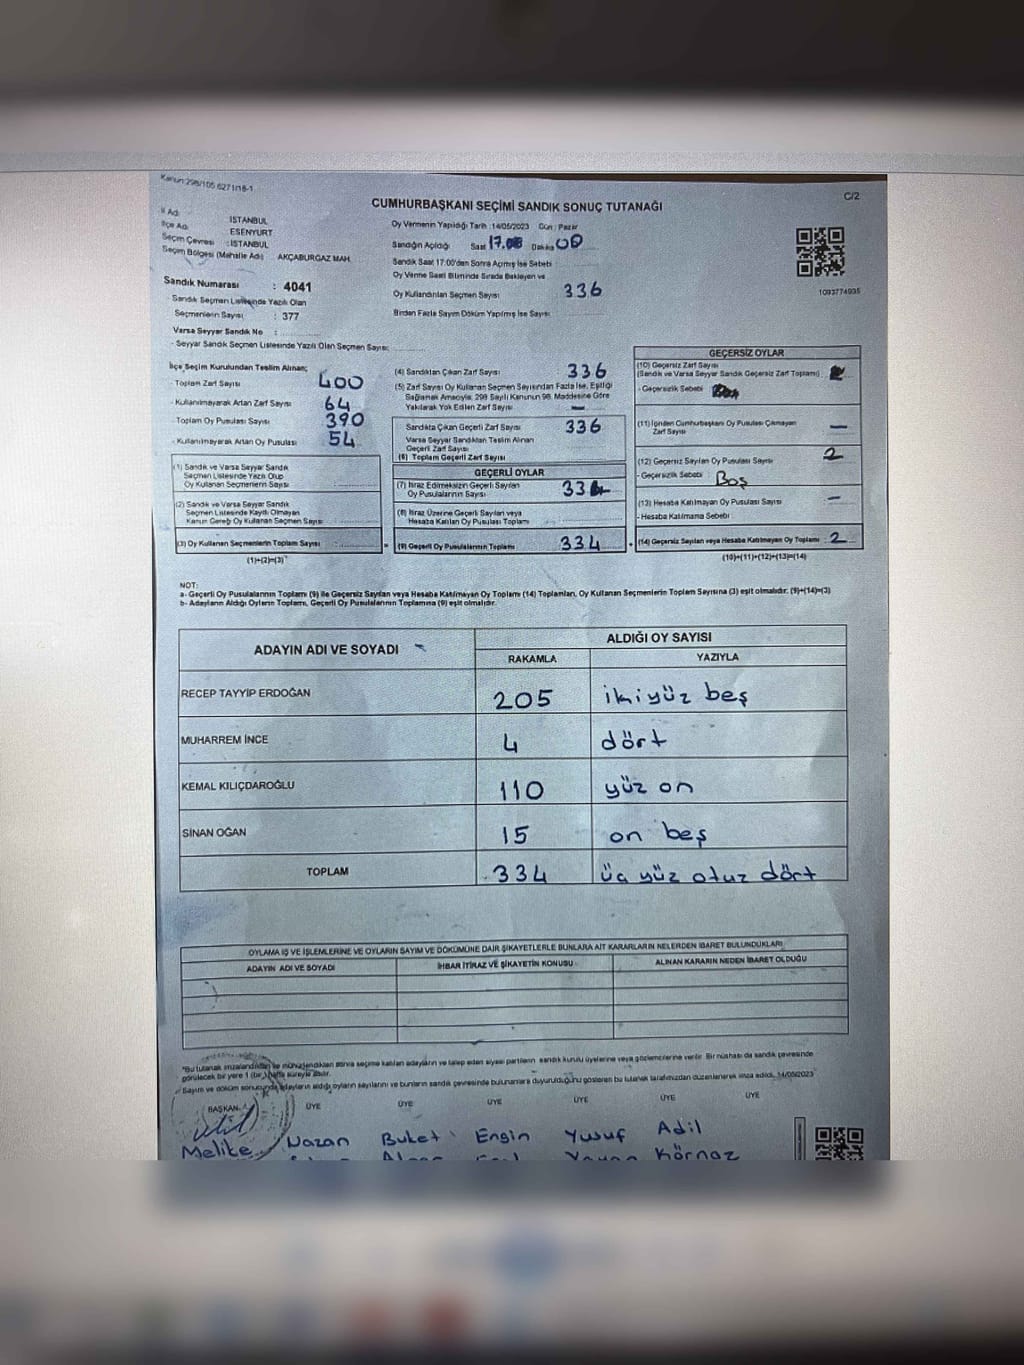 Kanun:298/105 6271/18-1
C/2
CUMHURBAŞKANI SEÇİMİ SANDIK SONUÇ TUTANAĞI
İl Adı : İSTANBUL
İlçe Adı : ESENYURT
Seçim Çevresi : İSTANBUL
Seçim Bölgesi (Mahalle Adı) AKÇABURGAZ MAH.
Sandık Numarası : 4041
- Sandık Seçmen Listesinde Yazılı Olan
Seçmenlerin Sayısı : 377
Varsa Seyyar Sandık No :
- Seyyar Sandık Seçmen Listesinde Yazılı Olan Seçmen Sayısı:
Oy Vermenin Yapıldığı Tarih :14/05/2023 Gün : Pazar
Sandığın Açıldığı Saat 17.00 Dakika 00
Sandık Saat 17:00'den Sonra Açılmış İse Sebebi
Oy Verme Saati Bitiminde Sırada Bekleyen ve
Oy Kullandırılan Seçmen Sayısı 336
Birden Fazla Sayım Döküm Yapılmış İse Sayısı
1093774935
İlçe Seçim Kurulundan Teslim Alınan;
- Toplam Zarf Sayısı 400
- Kullanılmayarak Artan Zarf Sayısı 64
- Toplam Oy Pusulası Sayısı 390
- Kullanılmayarak Artan Oy Pusulası 54
(1) Sandık ve Varsa Seyyar Sandık
Seçmen Listesinde Yazılı Olup
Oy Kullanan Seçmenlerin Sayısı
(2) Sandık ve Varsa Seyyar Sandık
Seçmen Listesinde Kayıtlı Olmayan
Kanun Gereği Oy Kullanan Seçmen Sayısı
(3) Oy Kullanan Seçmenlerin Toplam Sayısı :
(1)+(2)=(3)
(4) Sandıktan Çıkan Zarf Sayısı 336
(5) Zarf Sayısı Oy Kullanan Seçmen Sayısından Fazla İse, Eşitliği
Sağlamak Amacıyla; 298 Sayılı Kanunun 98. Maddesine Göre
Yakılarak Yok Edilen Zarf Sayısı —
Sandıkta Çıkan Geçerli Zarf Sayısı 336
Varsa Seyyar Sandıktan Teslim Alınan
Geçerli Zarf Sayısı
(6) Toplam Geçerli Zarf Sayısı
GEÇERLİ OYLAR
(7) İtiraz Edilmeksizin Geçerli Sayılan
Oy Pusulalarının Sayısı 334
(8) İtiraz Üzerine Geçerli Sayılan veya
Hesaba Katılan Oy Pusulası Toplamı
(9) Geçerli Oy Pusulalarının Toplamı 334
GEÇERSİZ OYLAR
(10) Geçersiz Zarf Sayısı
(Sandık ve Varsa Seyyar Sandık Geçersiz Zarf Toplamı)
- Geçersizlik Sebebi
(11) İçinden Cumhurbaşkanı Oy Pusulası Çıkmayan
Zarf Sayısı —
(12) Geçersiz Sayılan Oy Pusulası Sayısı 2
- Geçersizlik Sebebi Boş
(13) Hesaba Katılmayan Oy Pusulası Sayısı —
- Hesaba Katılmama Sebebi
(14) Geçersiz Sayılan veya Hesaba Katılmayan Oy Toplamı 2
(10)+(11)+(12)+(13)=(14)
NOT:
a- Geçerli Oy Pusulalarının Toplamı (9) ile Geçersiz Sayılan veya Hesaba Katılmayan Oy Toplamı (14) Toplamları, Oy Kullanan Seçmenlerin Toplam Sayısına (3) eşit olmalıdır. (9)+(14)=(3)
b- Adayların Aldığı Oyların Toplamı, Geçerli Oy Pusulalarının Toplamına (9) eşit olmalıdır.
ADAYIN ADI VE SOYADI ALDIĞI OY SAYISI
RAKAMLA YAZIYLA
RECEP TAYYİP ERDOĞAN 205 ikiyüz beş
MUHARREM İNCE 4 dört
KEMAL KILIÇDAROĞLU 110 yüz on
SİNAN OĞAN 15 on beş
TOPLAM 334 üç yüz otuz dört
OYLAMA İŞ VE İŞLEMLERİNE VE OYLARIN SAYIM VE DÖKÜMÜNE DAİR ŞİKAYETLERLE BUNLARA AİT KARARLARIN NELERDEN İBARET BULUNDUKLARI
ADAYIN ADI VE SOYADI İHBAR İTİRAZ VE ŞİKAYETİN KONUSU ALINAN KARARIN NEDEN İBARET OLDUĞU
"Bu tutanak imzalandıktan ve mühürlendikten sonra seçime katılan adayların ve talep eden siyasi partilerin sandık kurulu üyelerine veya gözlemcilerine verilir. Bir nüshası da sandık çevresinde
görülecek bir yere 1 (bir) hafta süreyle asılır.
Sayım ve döküm sonucunda adayların aldığı oyların sayılarını ve bunların sandık çevresinde bulunanlara duyurulduğunu gösteren bu tutanak tarafımızdan düzenlenerek imza edildi. 14/05/2023
BAŞKAN ÜYE ÜYE ÜYE ÜYE ÜYE ÜYE
Melike Nazan Buket Engin Yusuf Adil
Körnaz